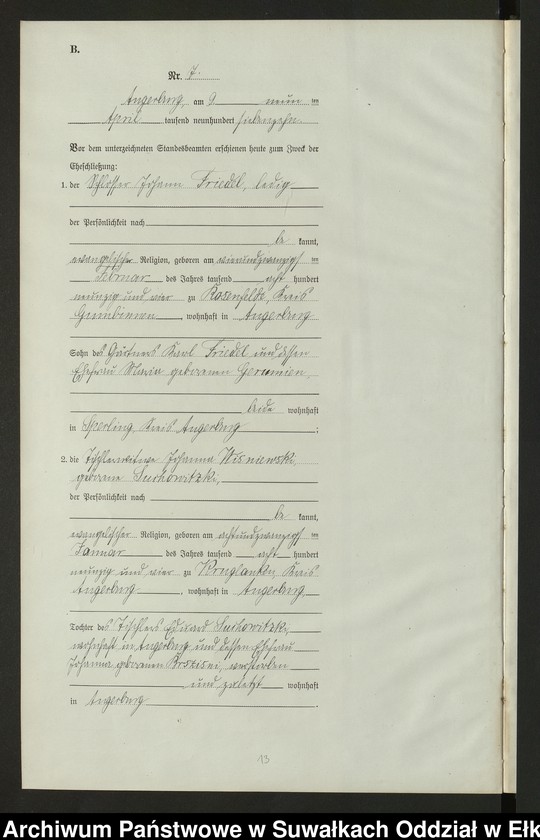 B.
Nr. 7.
Angerburg, am 9. neun ten
April tausend neunhundert siebenzehn.
Vor dem unterzeichneten Standesbeamten erschienen heute zum Zweck der
Eheschließung:
1. der Schlosser Johann Friedel, ledig
der Persönlichkeit nach
be kannt,
evangelischer Religion, geboren am vierundzwanzigsten
Februar des Jahres tausend acht hundert
neunzig und vier zu Rosenfelde, Kreis
Gumbinnen, wohnhaft in Angerburg
Sohn des Gärtners Karl Friedel und dessen
Ehefrau Maria geborenen
beide wohnhaft
in Sperling, Kreis Angerburg;
2. die Tischlerwitwe Johanna Wisniewski,
geborene Suchowitzki,
der Persönlichkeit nach
be kannt,
evangelischer Religion, geboren am achtundzwanzigsten
Januar des Jahres tausend acht hundert
neunzig und vier zu Kruglanken, Kreis
Angerburg, wohnhaft in Angerburg
Tochter des Tischlers Eduard Suchowitzki,
wohnhaft in Angerburg und dessen Ehefrau
Johanna geborenen verstorben
und zuletzt wohnhaft
in Angerburg.
13
Archiwum Państwowe w Suwałkach Oddział w Ełk